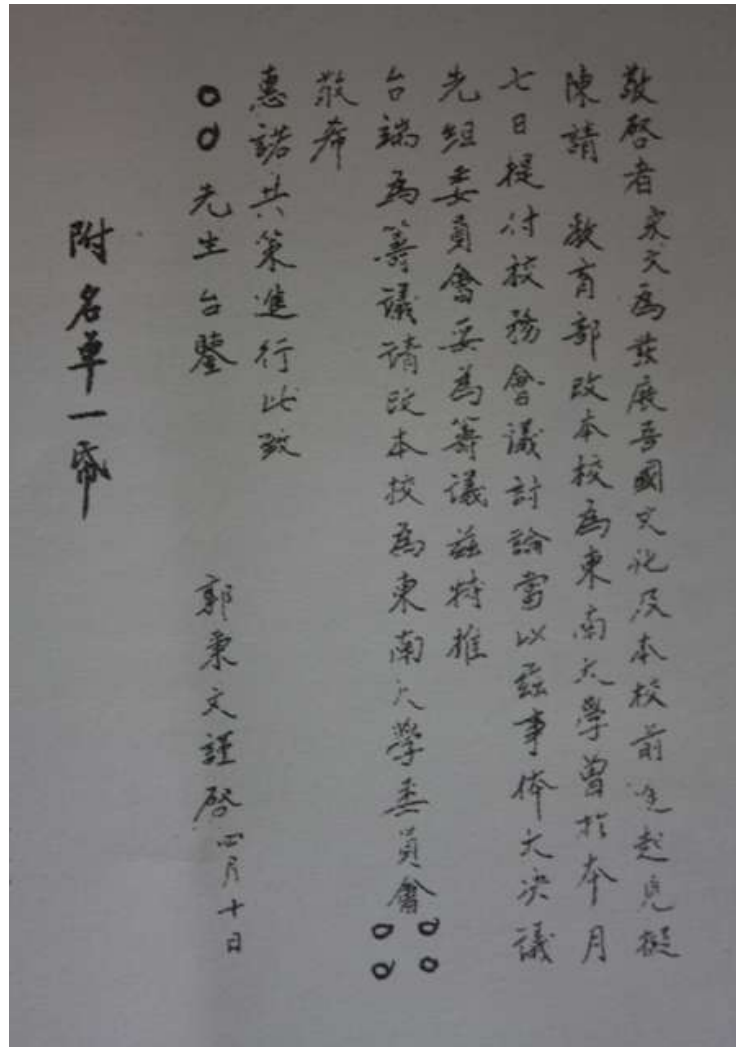 敬啓者秉文為發展吾國文化及本校前途起見擬
陳請　教育部改本校為東南大學曾於本月
七日提付校務會議討論當以茲事体大决議
先組委員會妥為籌議茲特推
台端為籌議請改本校為東南大學委員會○○○○
敬希
惠諾共策進行此致
○○先生台鑒
郭秉文謹啓四月十日
附名單一帋